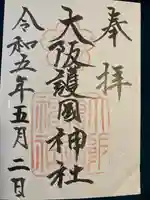 奉拝
大阪護國神社
令和五年五月二日